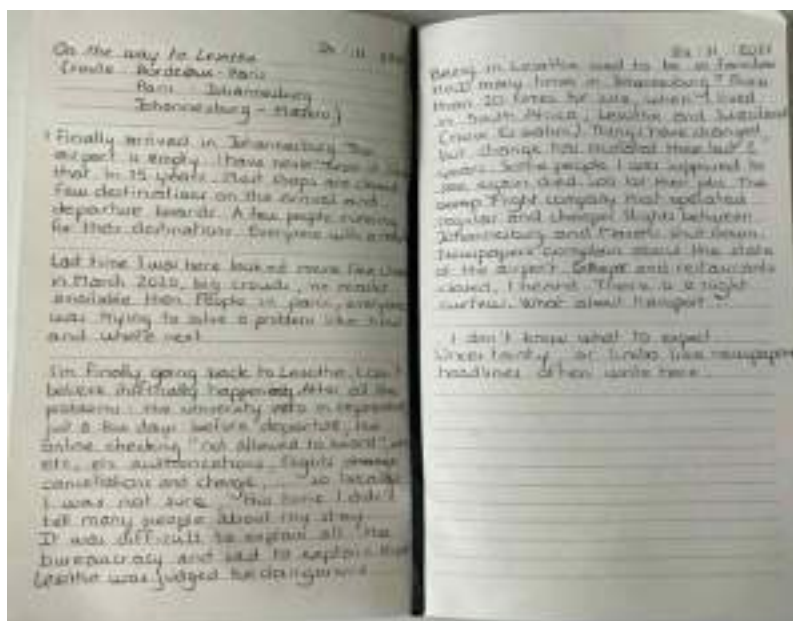 On the way to Lesotho 24 11
(route Bordeaux - Paris
Paris Johannesburg
Johannesburg - Maseru)
Finally arrived in Johannesburg. The
airport is empty. I have never
that in 15 years. Most shops are closed
Few destinations on the arrival and
departure boards. A few people running
for their destinations. Everyone with a
Last time I was here looked more like
in March 2020, big crowds, no masks
available then. People in panic, everyone
was trying to solve a problem like how
and what's next
I'm finally going back to Lesotho. I can't
believe it's finally happening After all the
problems: the university veto in
just a few days before departure, the
online checking "not allowed to board",
etc. etc authorizations, flights
cancellations and change, ... so because
I was not sure, this time I didn't
tell many people about my stay.
It was difficult to explain all the
bureaucracy and sad to explain that
Lesotho was judged too dangerous
24 11 2021
Being in Lesotho used to be so familiar
many times in Johannesburg? More
than 20 times for sure, when I lived
in South Africa, Lesotho and Swaziland
(now Eswatini). Things have changed,
but change has these last 2
years. Some people I was supposed to
see again died, lost their jobs. The
flight company that operated
regular and cheaper flights between
Johannesburg and Maseru shut down.
Newspapers complain about the state
of the airport. and restaurants
closed, I heard. There is a night
curfew. What about transport
I don't know what to expect
Uncertainty, or limbo like newspaper
headlines often write here.